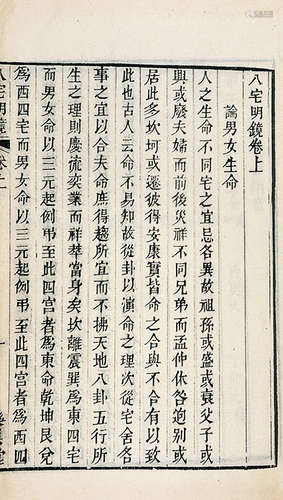 八宅明鏡卷上
論男女生命
人之生命不同宅之宜忌各異故祖孫或盛或衰父子或
興或廢夫婦而前後災祥不同兄弟而孟仲休咎迥別或
居此多坎坷或遷彼得安康實皆命之合與不合有以致
此也古人云命不易知故從卦以演命之理次從宅舍各
事之宜以合夫命庶得趨所宜而不拂天地八卦五行所
生之理則慶流奕業而祥萃當身矣坎離震巽為東四宅
而男女命以三元起例弔至此四宮者為東命乾坤艮兌
為西四而男女命以三元起例弔至此四宮者為西四
八宅明鏡 卷上